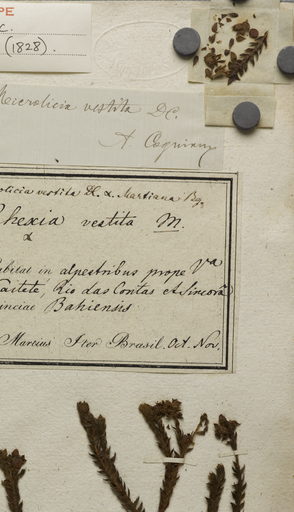 PE
c.
(1828).
Microlicia vestita DC.
A. Cogniaux
olicia vestita DC. α. Martiana Bg.
Rhexia vestita M.
α
abitat in alpestribus prope Va
Caitete, Rio das Contas et Sincorá
inciae Bahiensis
Martius Iter Brasil. Oct. Nov.